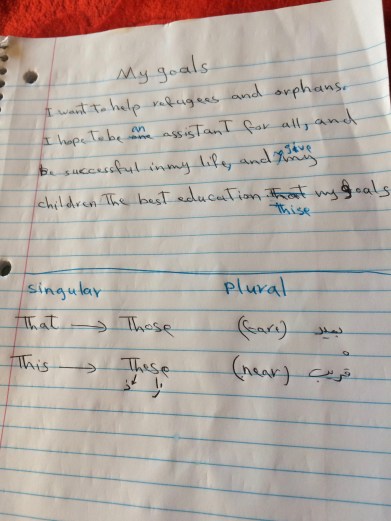 My goals
I want to help refugees and orphans.
I hope to be an assistant for all, and
be successful in my life, and give my
children The best education that my goals
thise
singular plural
That → Those (far) بعيد
This → These (near) قريب